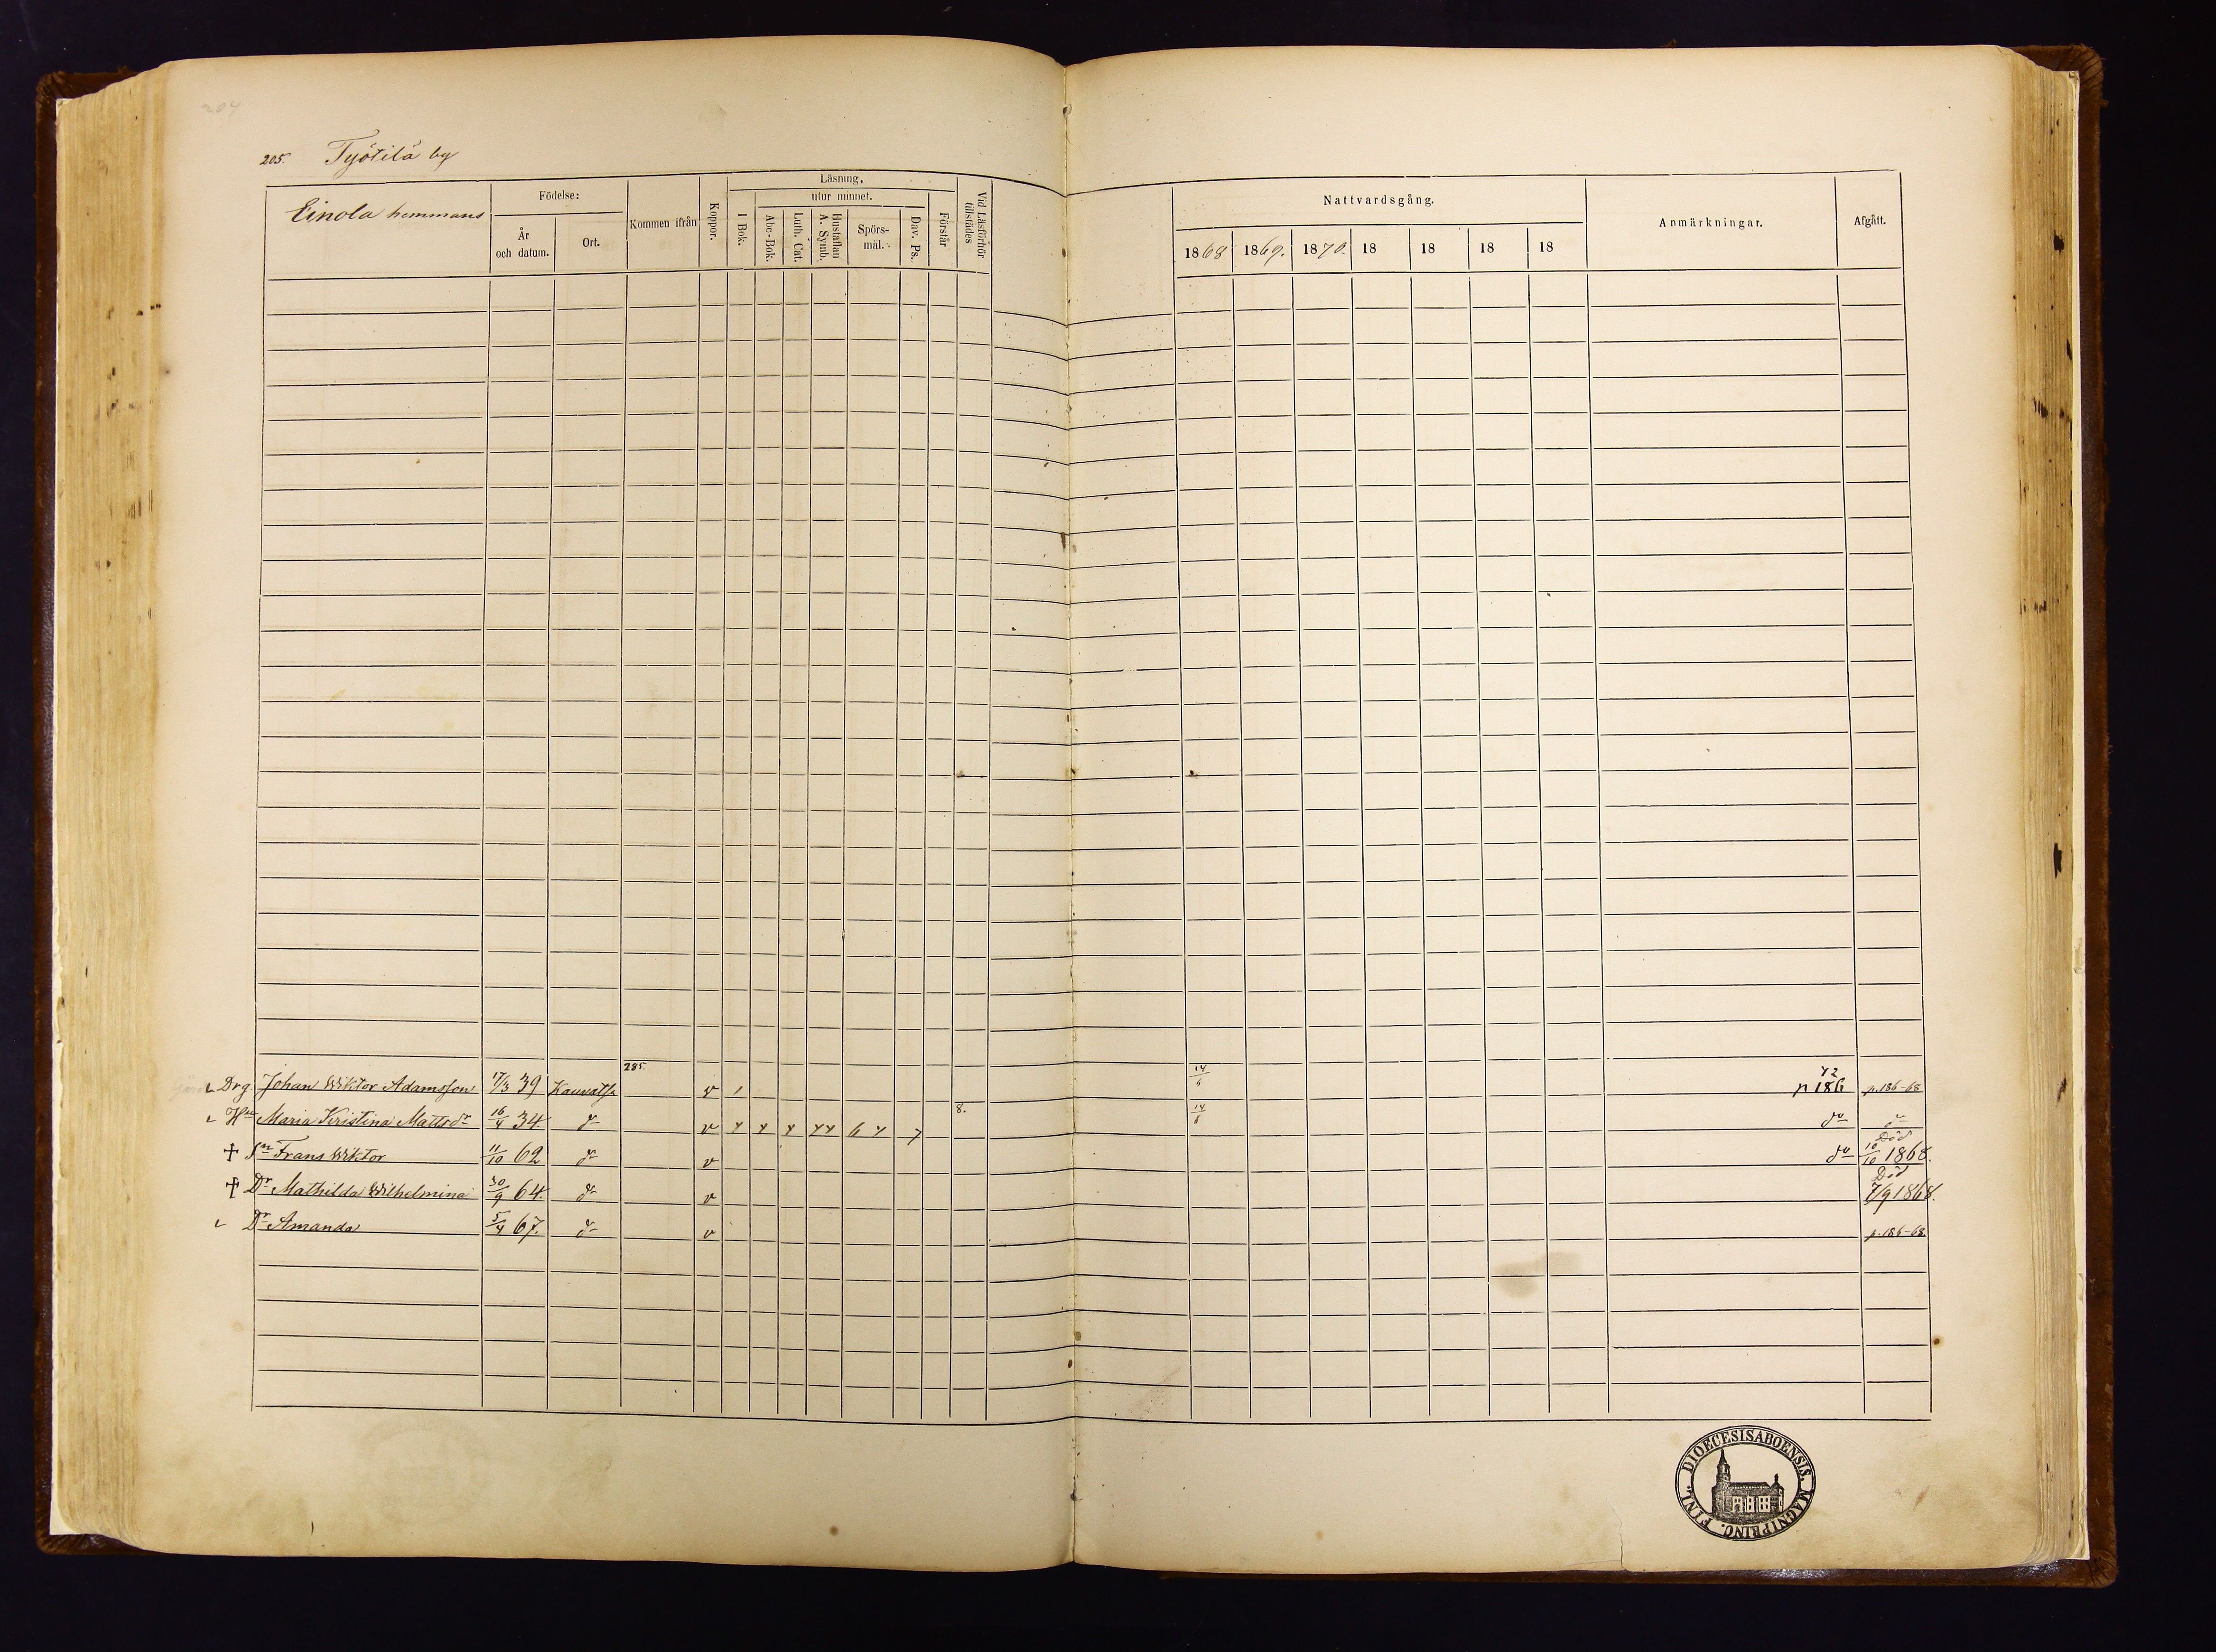 204
205. Työtilä by
Einola hemmans
Födelse:
År och datum.
Ort.
Kommen ifrån
Koppor.
Läsning,
utur minnet.
I Bok.
Abc-Bok.
Luth. Cat.
Hustaflan A. Symb.
Spörs-mål.
Dav. Ps.
Förstår
Vid Läsförhör tillstädes
Nattvardsgång.
1868 1869. 1870. 18 18 18 18
Anmärkningar.
Afgått.
Drg Johan Wiktor Adamsson 17/3 39 Kauvatsa 285. v 1 14/6 42 p 186 p. 186-68
Hu Maria Kristina Mattsdr 16/4 34 do v 8. 14/6 do do
+ Sn Frans Wiktor 11/10 62 do v do Död 10/10 1868.
+ Dr Mathilda Wilhelmina 30/9 64. do v Död 7/9 1868.
Dr Amanda 5/4 67. do v p. 186-68.
DIOECESIS ABOENSIS. MAGNI PRINC. FINL.